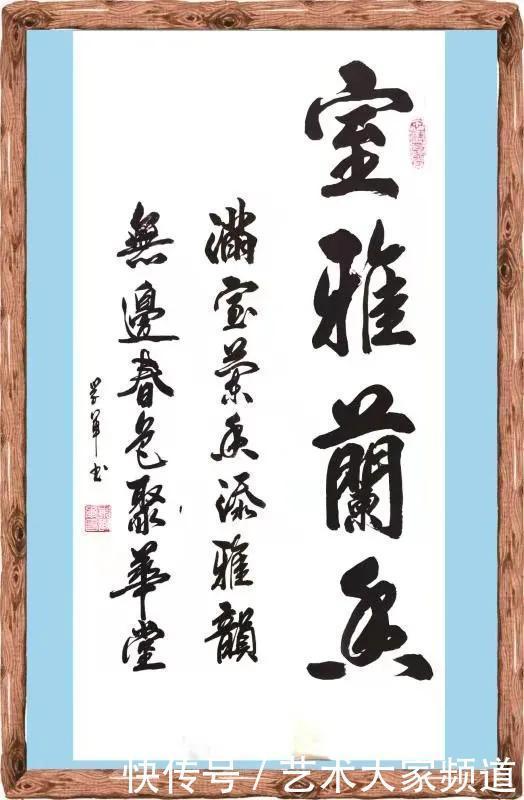 室雅蘭香
滿室蘭香添雅韻
無邊春色聚華堂
書
快传号/艺术大家频道